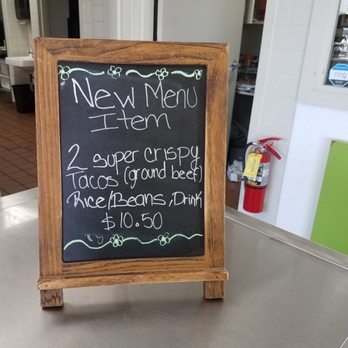 New Menu
Item
2 super crispy
Tacos (ground beef)
Rice/Beans, Drink
$10.50
ring